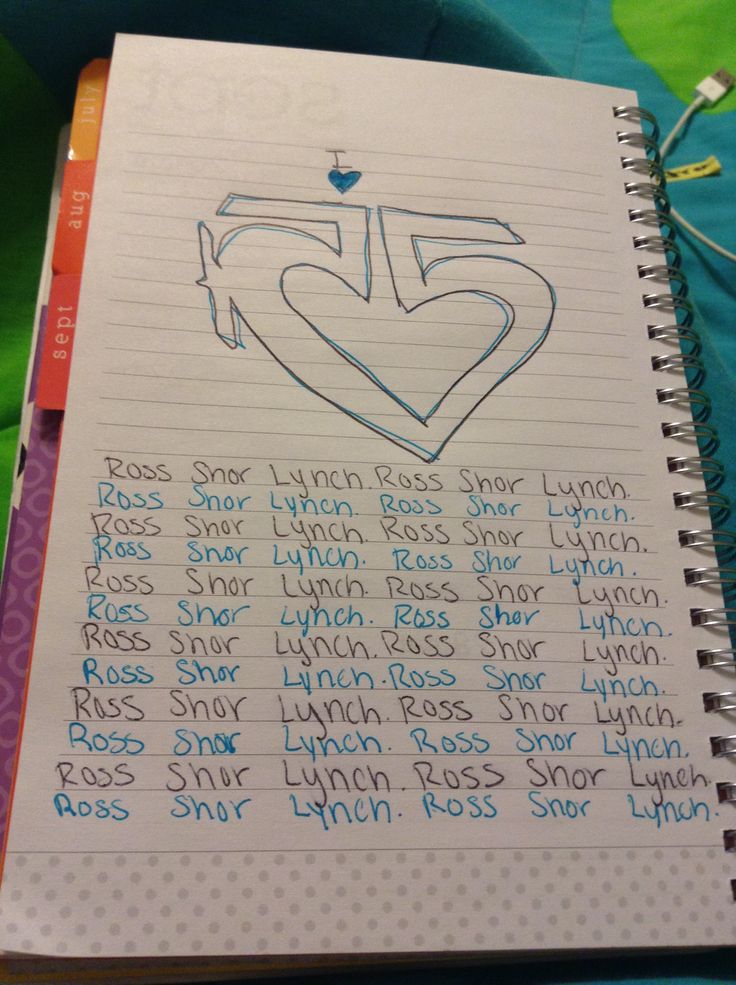 sept
july
aug
sept
I
R5
Ross Shor Lynch. Ross Shor Lynch.
Ross Shor Lynch. Ross Shor Lynch.
Ross Shor Lynch. Ross Shor Lynch.
Ross Shor Lynch. Ross Shor Lynch.
Ross Shor Lynch. Ross Shor Lynch.
Ross Shor Lynch. Ross Shor Lynch.
Ross Shor Lynch. Ross Shor Lynch.
Ross Shor Lynch. Ross Shor Lynch.
Ross Shor Lynch. Ross Shor Lynch.
Ross Shor Lynch. Ross Shor Lynch.
Ross Shor Lynch. Ross Shor Lynch.
Ross Shor Lynch. Ross Shor Lynch.